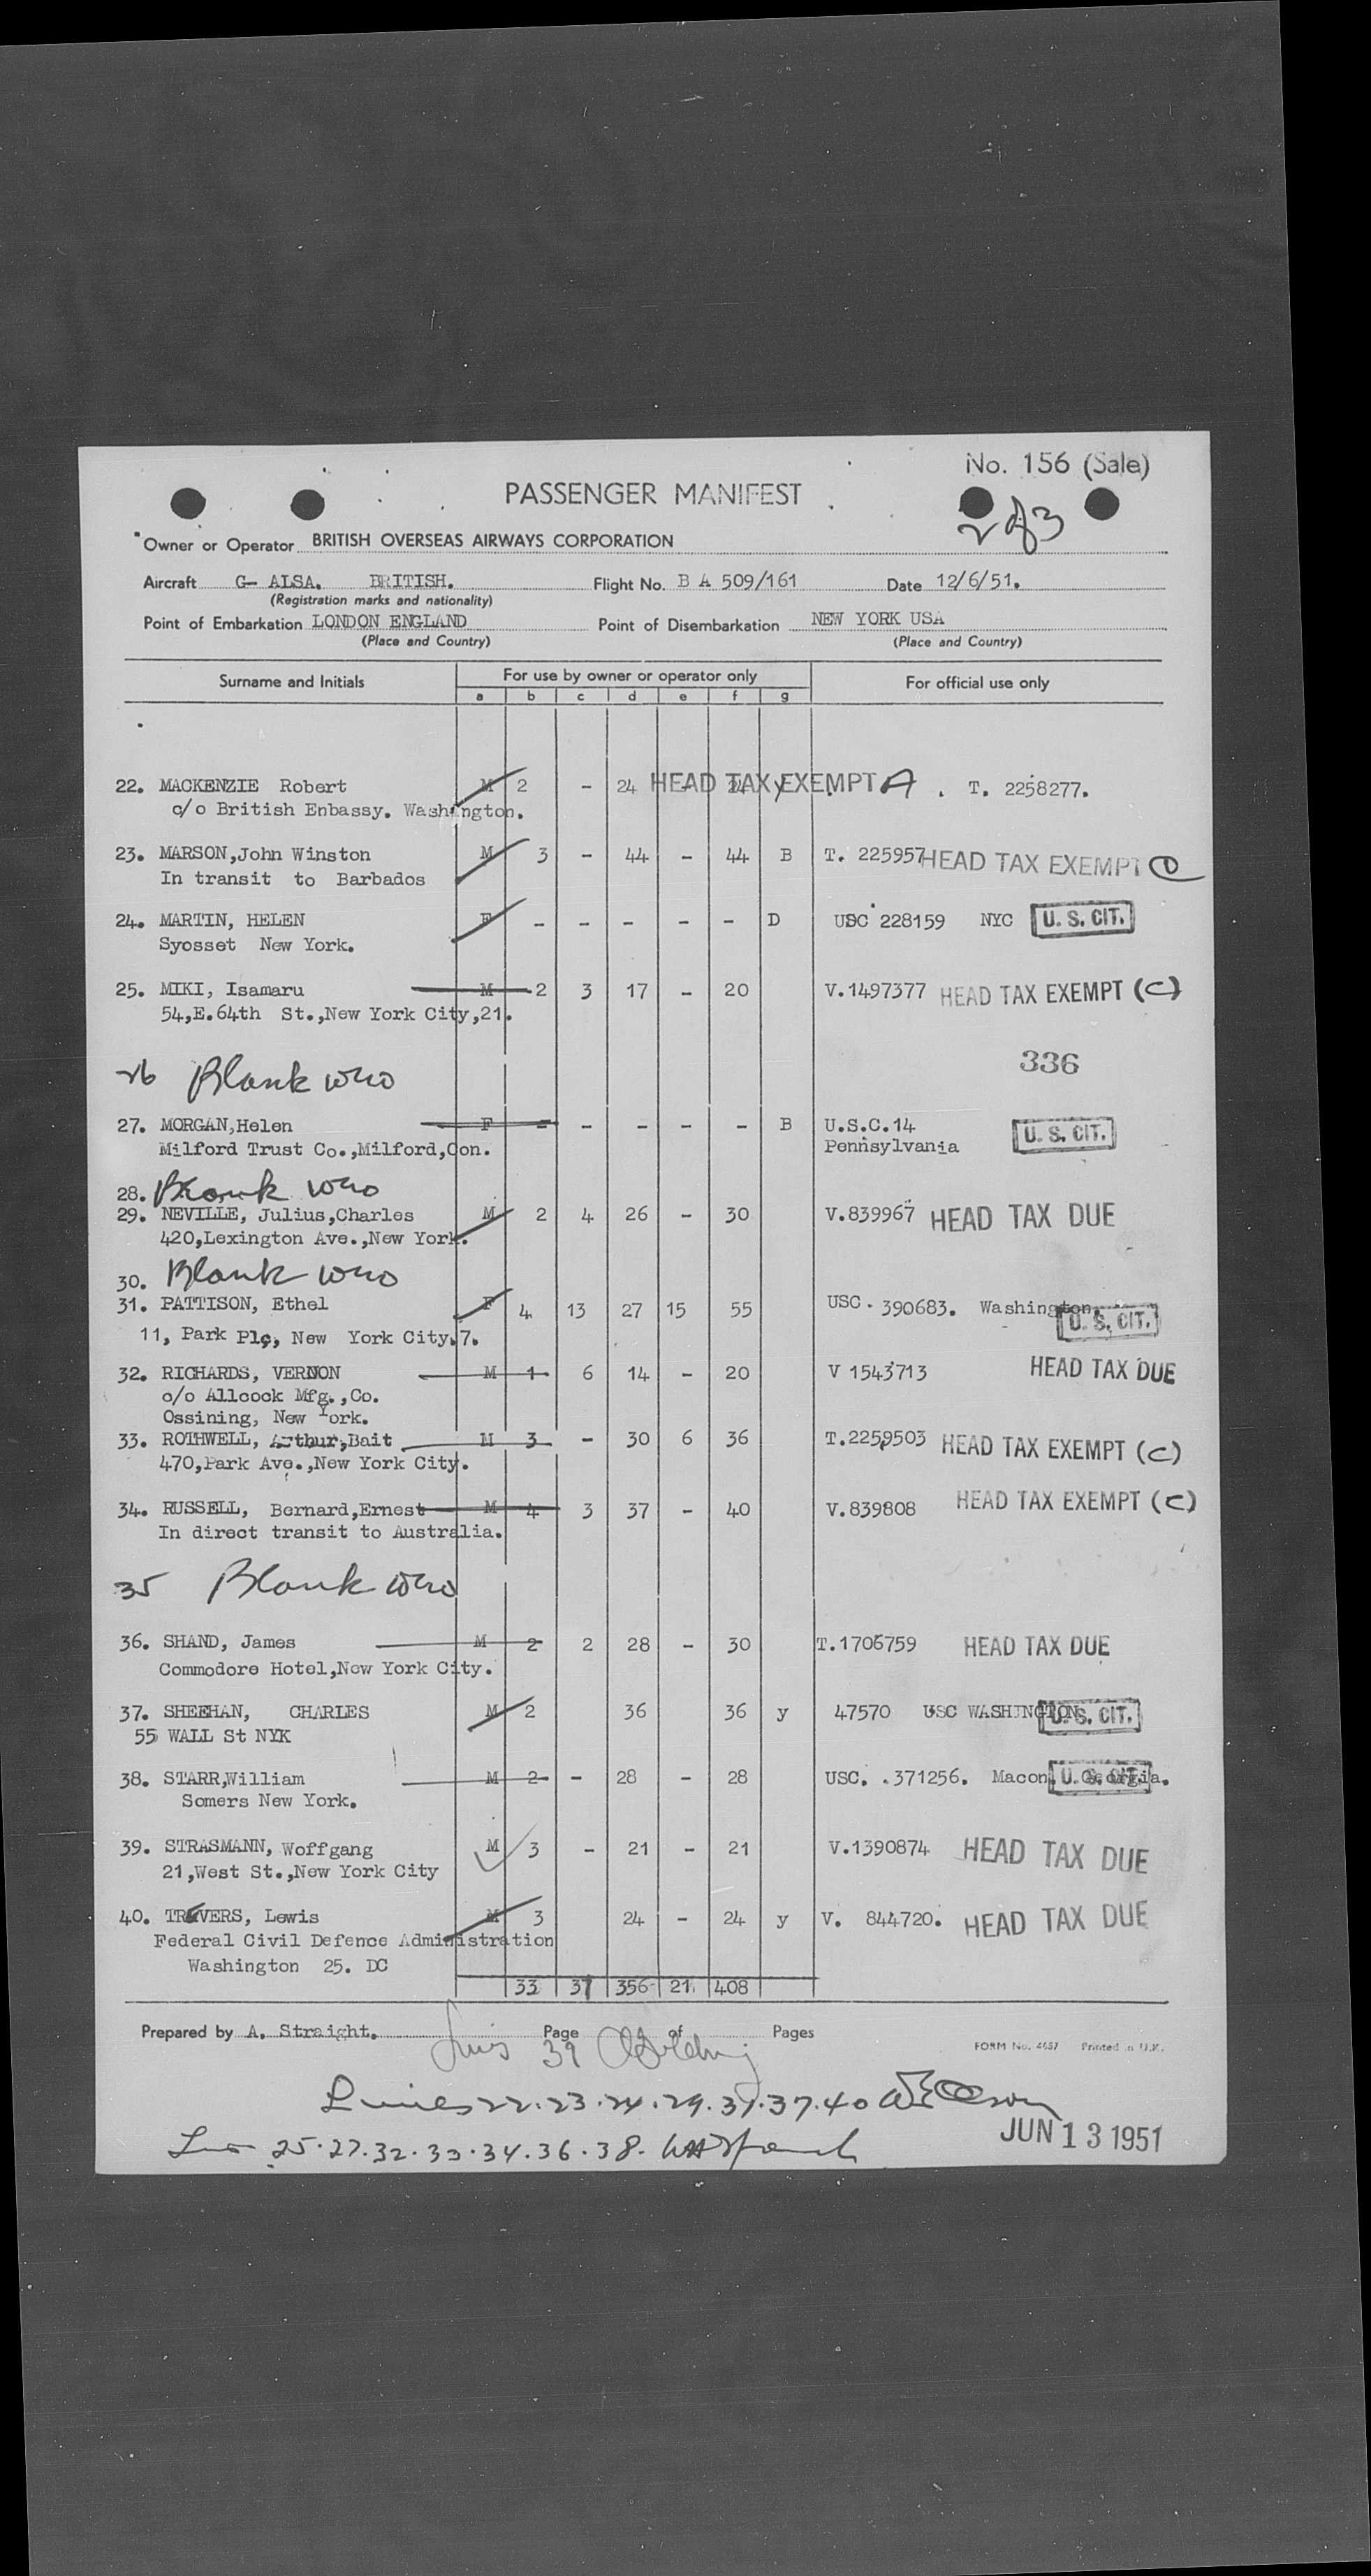 No. 156 (Sale)
PASSENGER MANIFEST
2 of 3
Owner or Operator BRITISH OVERSEAS AIRWAYS CORPORATION
Aircraft G- ALSA. BRITISH. Flight No. B A 509/161 Date 12/6/51.
(Registration marks and nationality)
Point of Embarkation LONDON ENGLAND Point of Disembarkation NEW YORK USA
(Place and Country) (Place and Country)
Surname and Initials For use by owner or operator only For official use only
a b c d e f g
22. MACKENZIE Robert M 2 - 24 - 24 y HEAD TAX EXEMPT A . T. 2258277.
c/o British Enbassy. Washington.
23. MARSON,John Winston M 3 - 44 - 44 B T. 225957 HEAD TAX EXEMPT D
In transit to Barbados
24. MARTIN, HELEN F - - - - - D USC 228159 NYC U. S. CIT.
Syosset New York.
25. MIKI, Isamaru M 2 3 17 - 20 V.1497377 HEAD TAX EXEMPT (C)
54,E.64th St.,New York City,21.
336
26 Blank WHO
27. MORGAN,Helen F - - - - - B U.S.C.14 U. S. CIT.
Milford Trust Co.,Milford,Con. Pennsylvania
28. Blank WHO
29. NEVILLE, Julius,Charles M 2 4 26 - 30 V.839967 HEAD TAX DUE
420,Lexington Ave.,New York.
30. Blank WHO
31. PATTISON, Ethel F 4 13 27 15 55 USC. 390683. Washington. U. S. CIT.
11, Park Plc, New York City.7.
32. RICHARDS, VERNON M 1 6 14 - 20 V 1543713 HEAD TAX DUE
c/o Allcock Mfg.,Co.
Ossining, New York.
33. ROTHWELL, Arthur,Bait M 3 - 30 6 36 T.2259503 HEAD TAX EXEMPT (C)
470,Park Ave.,New York City.
34. RUSSELL, Bernard,Ernest M 4 3 37 - 40 V.839808 HEAD TAX EXEMPT (C)
In direct transit to Australia.
35 Blank WHO
36. SHAND, James M 2 2 28 - 30 T.1706759 HEAD TAX DUE
Commodore Hotel,New York City.
37. SHEEHAN, CHARLES M 2 36 36 y 47570 USC WASHINGTON U. S. CIT.
55 WALL St NYK
38. STARR,William M 2 - 28 - 28 USC. .371256. Macon. Georgia. U. S. CIT.
Somers New York.
39. STRASMANN, Woffgang M 3 - 21 - 21 V.1390874 HEAD TAX DUE
21,West St.,New York City
40. TREVERS, Lewis M 3 24 - 24 y V. 844720. HEAD TAX DUE
Federal Civil Defence Administration
Washington 25. DC
33 37 356 21 408
Prepared by A. Straight. Page of Pages
FORM No. 4657 Printed in U.K.
39
Lines 22.23.24.29.31.37.40
JUN 13 1951
25.27.32.33.34.36.38.